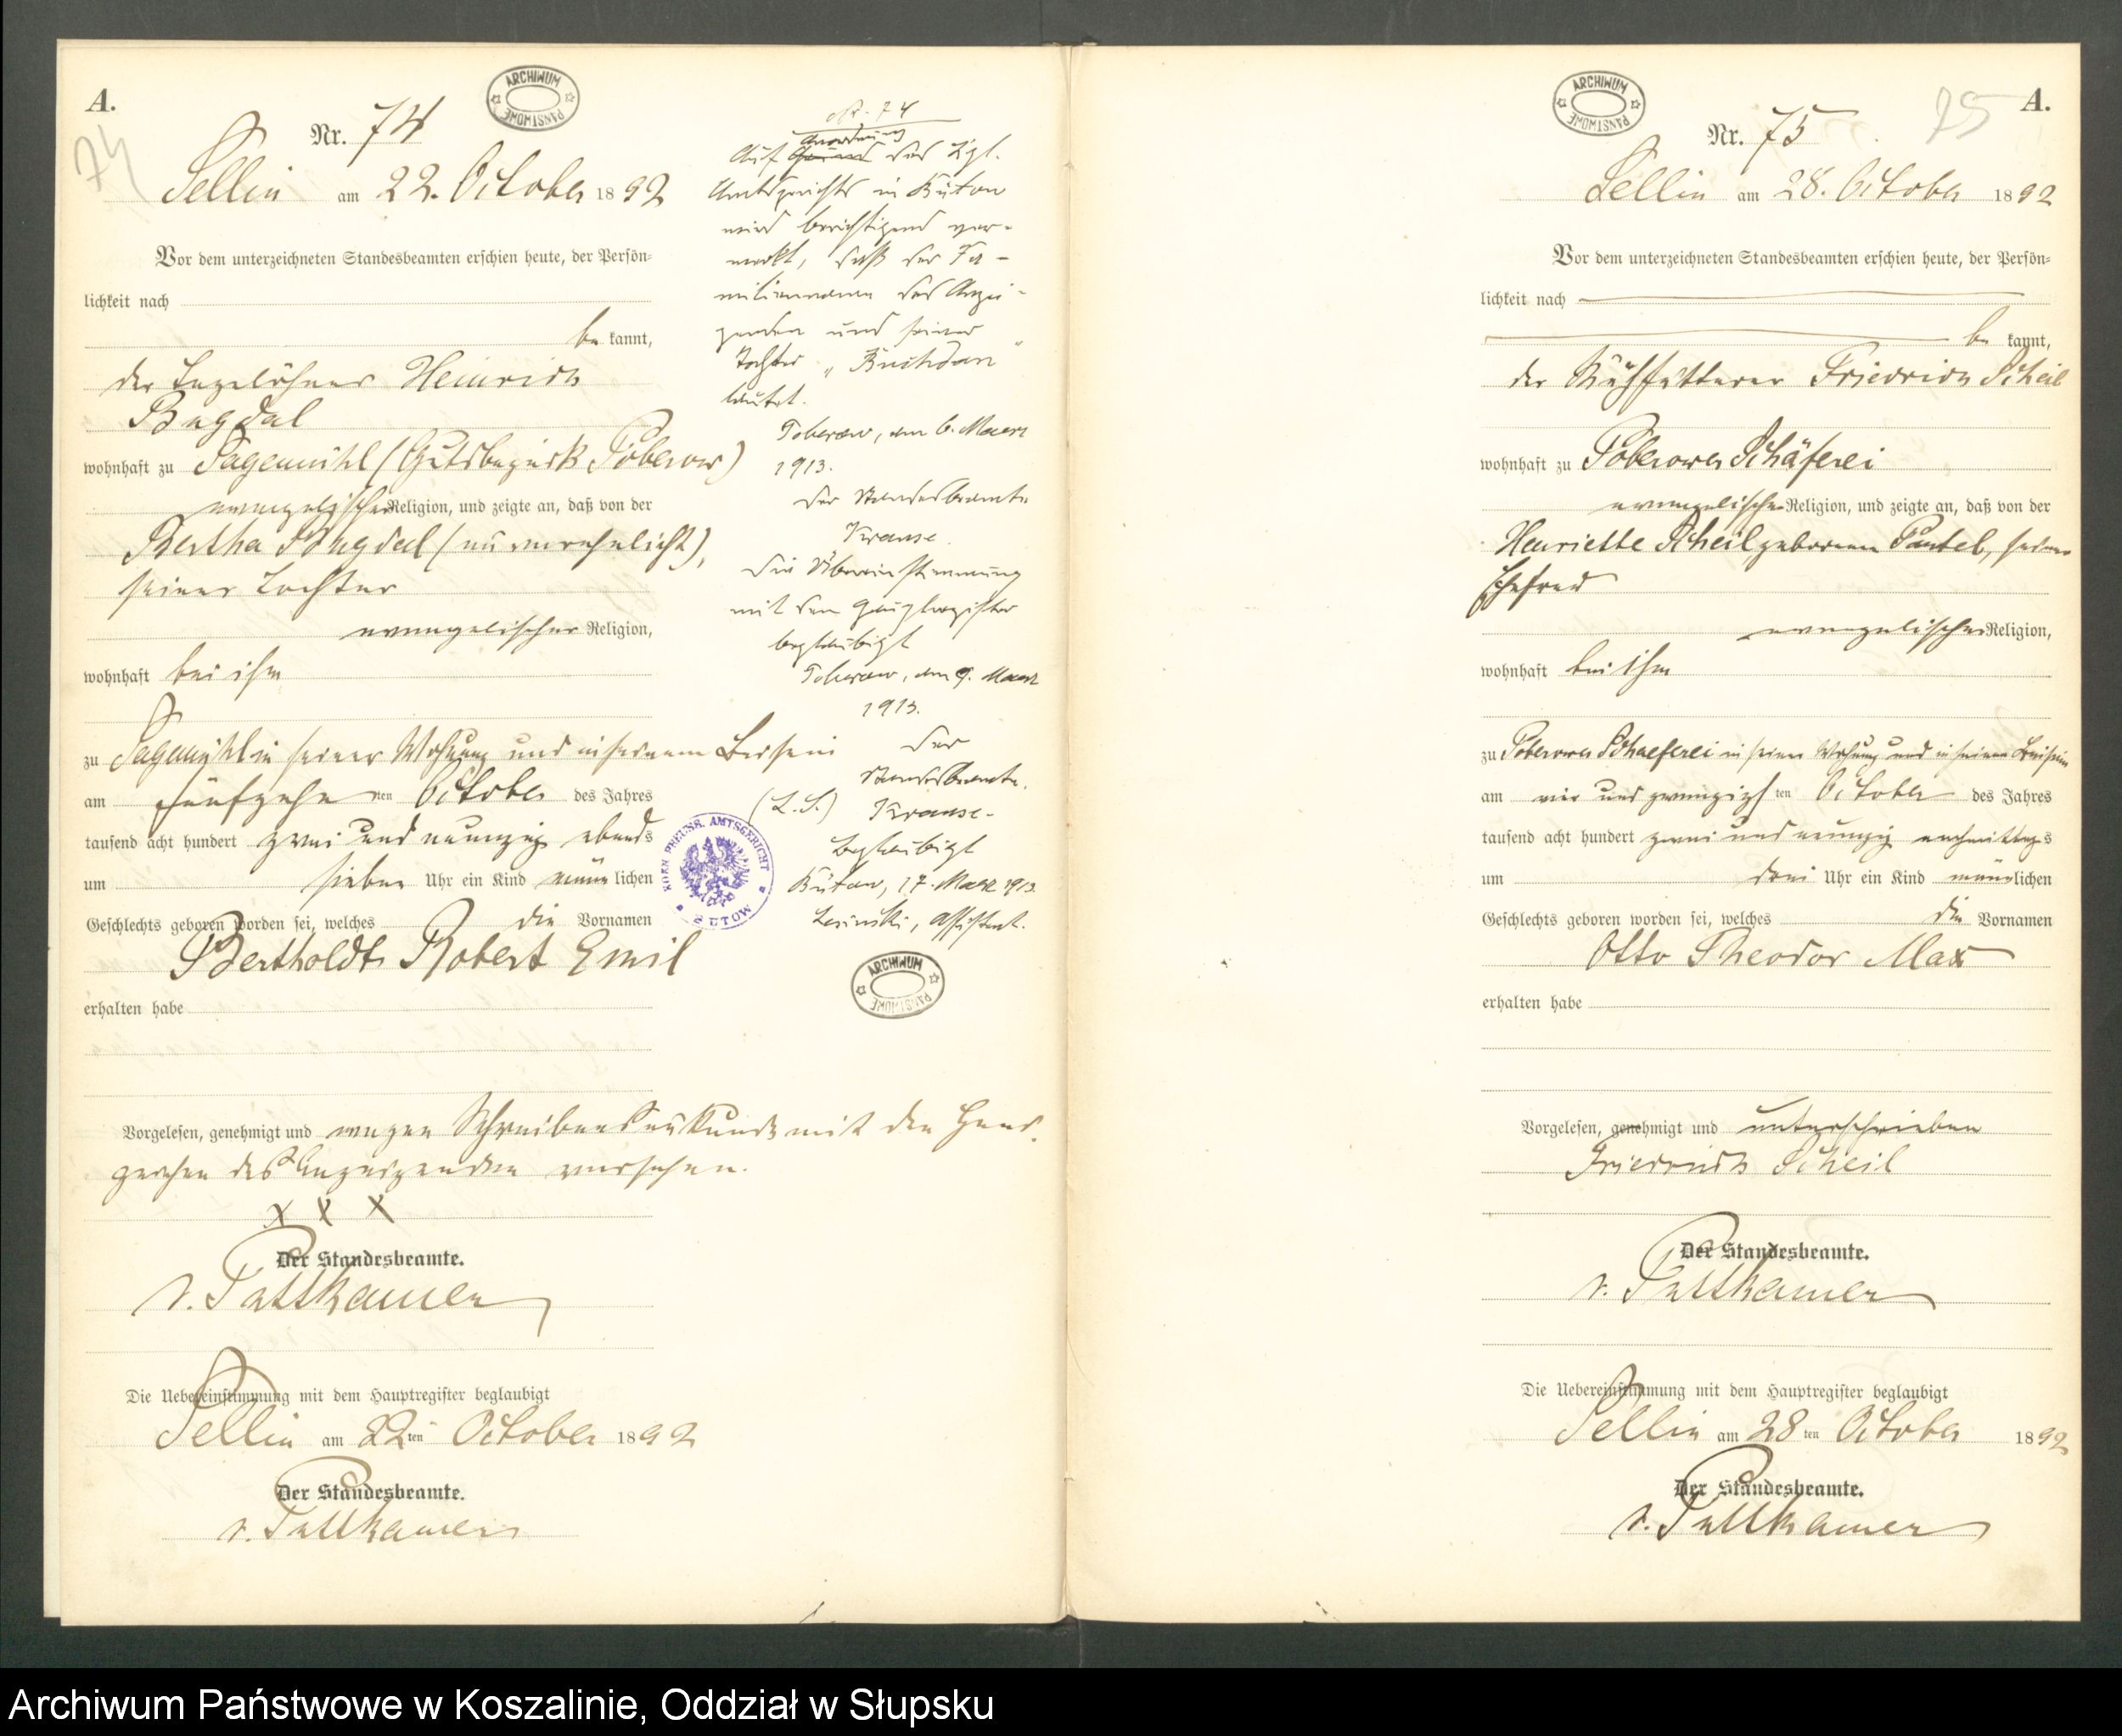 A.
74
Nr. 74
ARCHIWUM PAŃSTWOWE
Sellin am 22. October 1892
Vor dem unterzeichneten Standesbeamten erschien heute, der Persön=
lichkeit nach
be kannt,
der Tagelöhner Heinrich
Bugdal
wohnhaft zu Sägemühl (Gutsbezirk Poberow)
evangelischer Religion, und zeigte an, daß von der
Bertha Bugdal (unverehelicht),
seiner Tochter
evangelischer Religion,
wohnhaft bei ihm
zu Sägemühl in seiner Wohnung und in seinem Beisein
am fünfzehnten October des Jahres
tausend acht hundert zwei und neunzig abends
um sieben Uhr ein Kind männlichen
Geschlechts geboren worden sei, welches die Vornamen
Bertholdt Robert Emil
erhalten habe
Vorgelesen, genehmigt und wegen Schreibensunkunde mit den Hand-
zeichen des Anzeigenden versehen.
X X X
Der Standesbeamte.
v. Puttkamer
Die Uebereinstimmung mit dem Hauptregister beglaubigt
Sellin am 22ten October 1892
Der Standesbeamte.
v. Puttkamer
Nr. 74
Anordnung
Auf des Kgl.
Amtsgerichts in Bütow
wird berichtigend ver-
merkt, daß der Fa-
milienname des Anzei-
genden und seiner
Tochter „Buchdan"
lautet.
Poberow, den 6. Maerz
1913.
Der Standesbeamte
Krause.
Die Übereinstimmung
mit dem Hauptregister
beglaubigt
Poberow, den 9. Maerz
1913.
Der
Standesbeamte.
(L.S.) Krause.
KÖNI. PREUSS. AMTSGERICHT
BÜTOW
Beglaubigt
Bütow, 17. Maerz 1913.
Lesinski, Assistent.
ARCHIWUM PAŃSTWOWE
ARCHIWUM PAŃSTWOWE
75 A.
Nr. 75
Sellin am 28. October 1892
Vor dem unterzeichneten Standesbeamten erschien heute, der Persön=
lichkeit nach
be kannt,
der Kuhfütterer Friedrich Scheil
wohnhaft zu Poberower Schäferei
evangelischer Religion, und zeigte an, daß von der
Henriette Scheil geborenen Pantel, seiner
Ehefrau
evangelischer Religion,
wohnhaft bei ihm
zu Poberower Schaeferei in seiner Wohnung und in seinem Beisein
am vier und zwanzigsten October des Jahres
tausend acht hundert zwei und neunzig nachmittags
um drei Uhr ein Kind männlichen
Geschlechts geboren worden sei, welches die Vornamen
Otto Theodor Max
erhalten habe
Vorgelesen, genehmigt und unterschrieben
Friedrich Scheil
Der Standesbeamte.
v. Puttkamer
Die Uebereinstimmung mit dem Hauptregister beglaubigt
Sellin am 28ten October 1892
Der Standesbeamte.
v. Puttkamer
Archiwum Państwowe w Koszalinie, Oddział w Słupsku